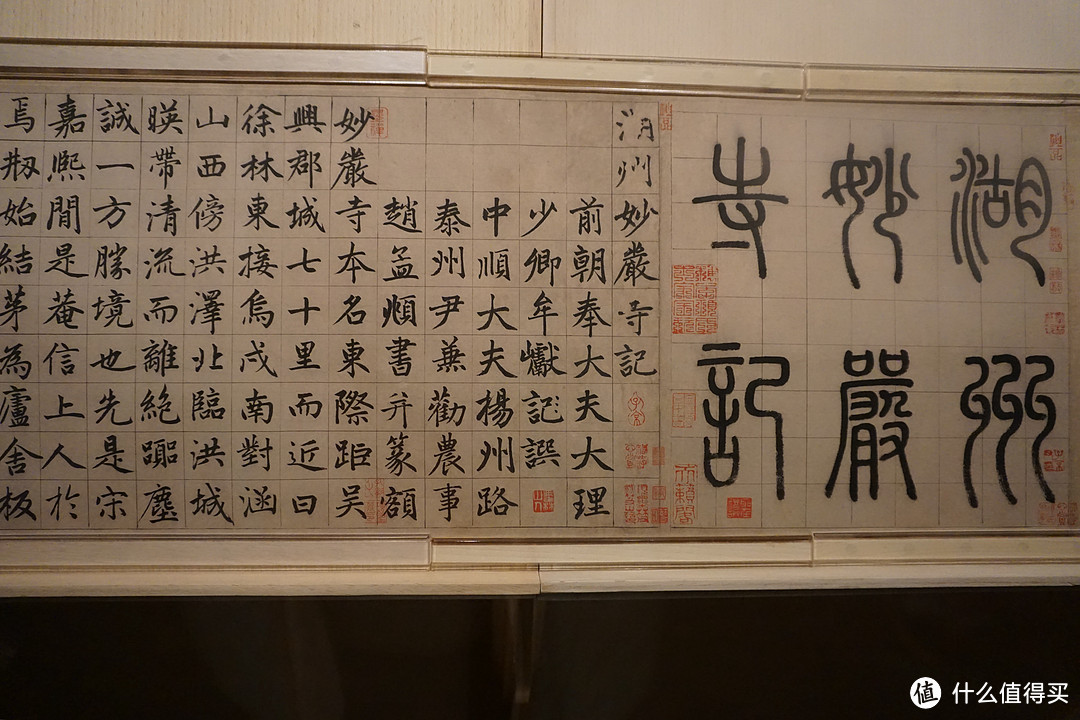 湖州
妙嚴
寺記
天籟閣
湖州妙嚴寺記
前朝奉大夫大理
少卿牟巘記譔
中順大夫楊州路
泰州尹兼勸農事
趙孟頫書并篆額
妙嚴寺本名東際距吳
興郡城七十里而近曰
徐林東接烏戍南對涵
山西傍洪澤北臨洪城
暎帶清流而離絶塵
誠一方勝境也先是宋
嘉熈閒是菴信上人於
焉刱始結茅為廬舍板
值 什么值得买